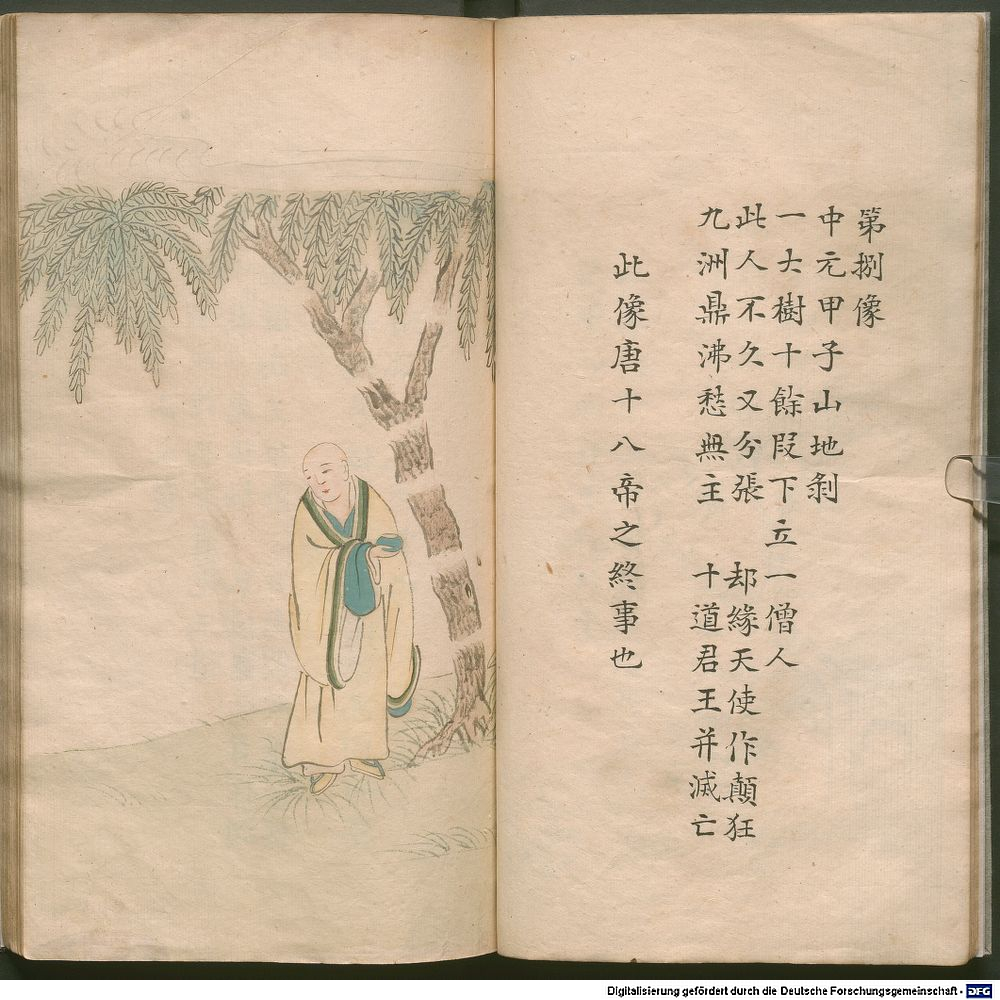 第捌像
中元甲子山地剥
一大樹十餘叚下立一僧人
此人不久又分張 却緣天使作顛狂
九洲鼎沸愁無主 十道君王并滅亡
此像唐十八帝之終事也
Digitalisierung gefördert durch die Deutsche Forschungsgemeinschaft - DFG